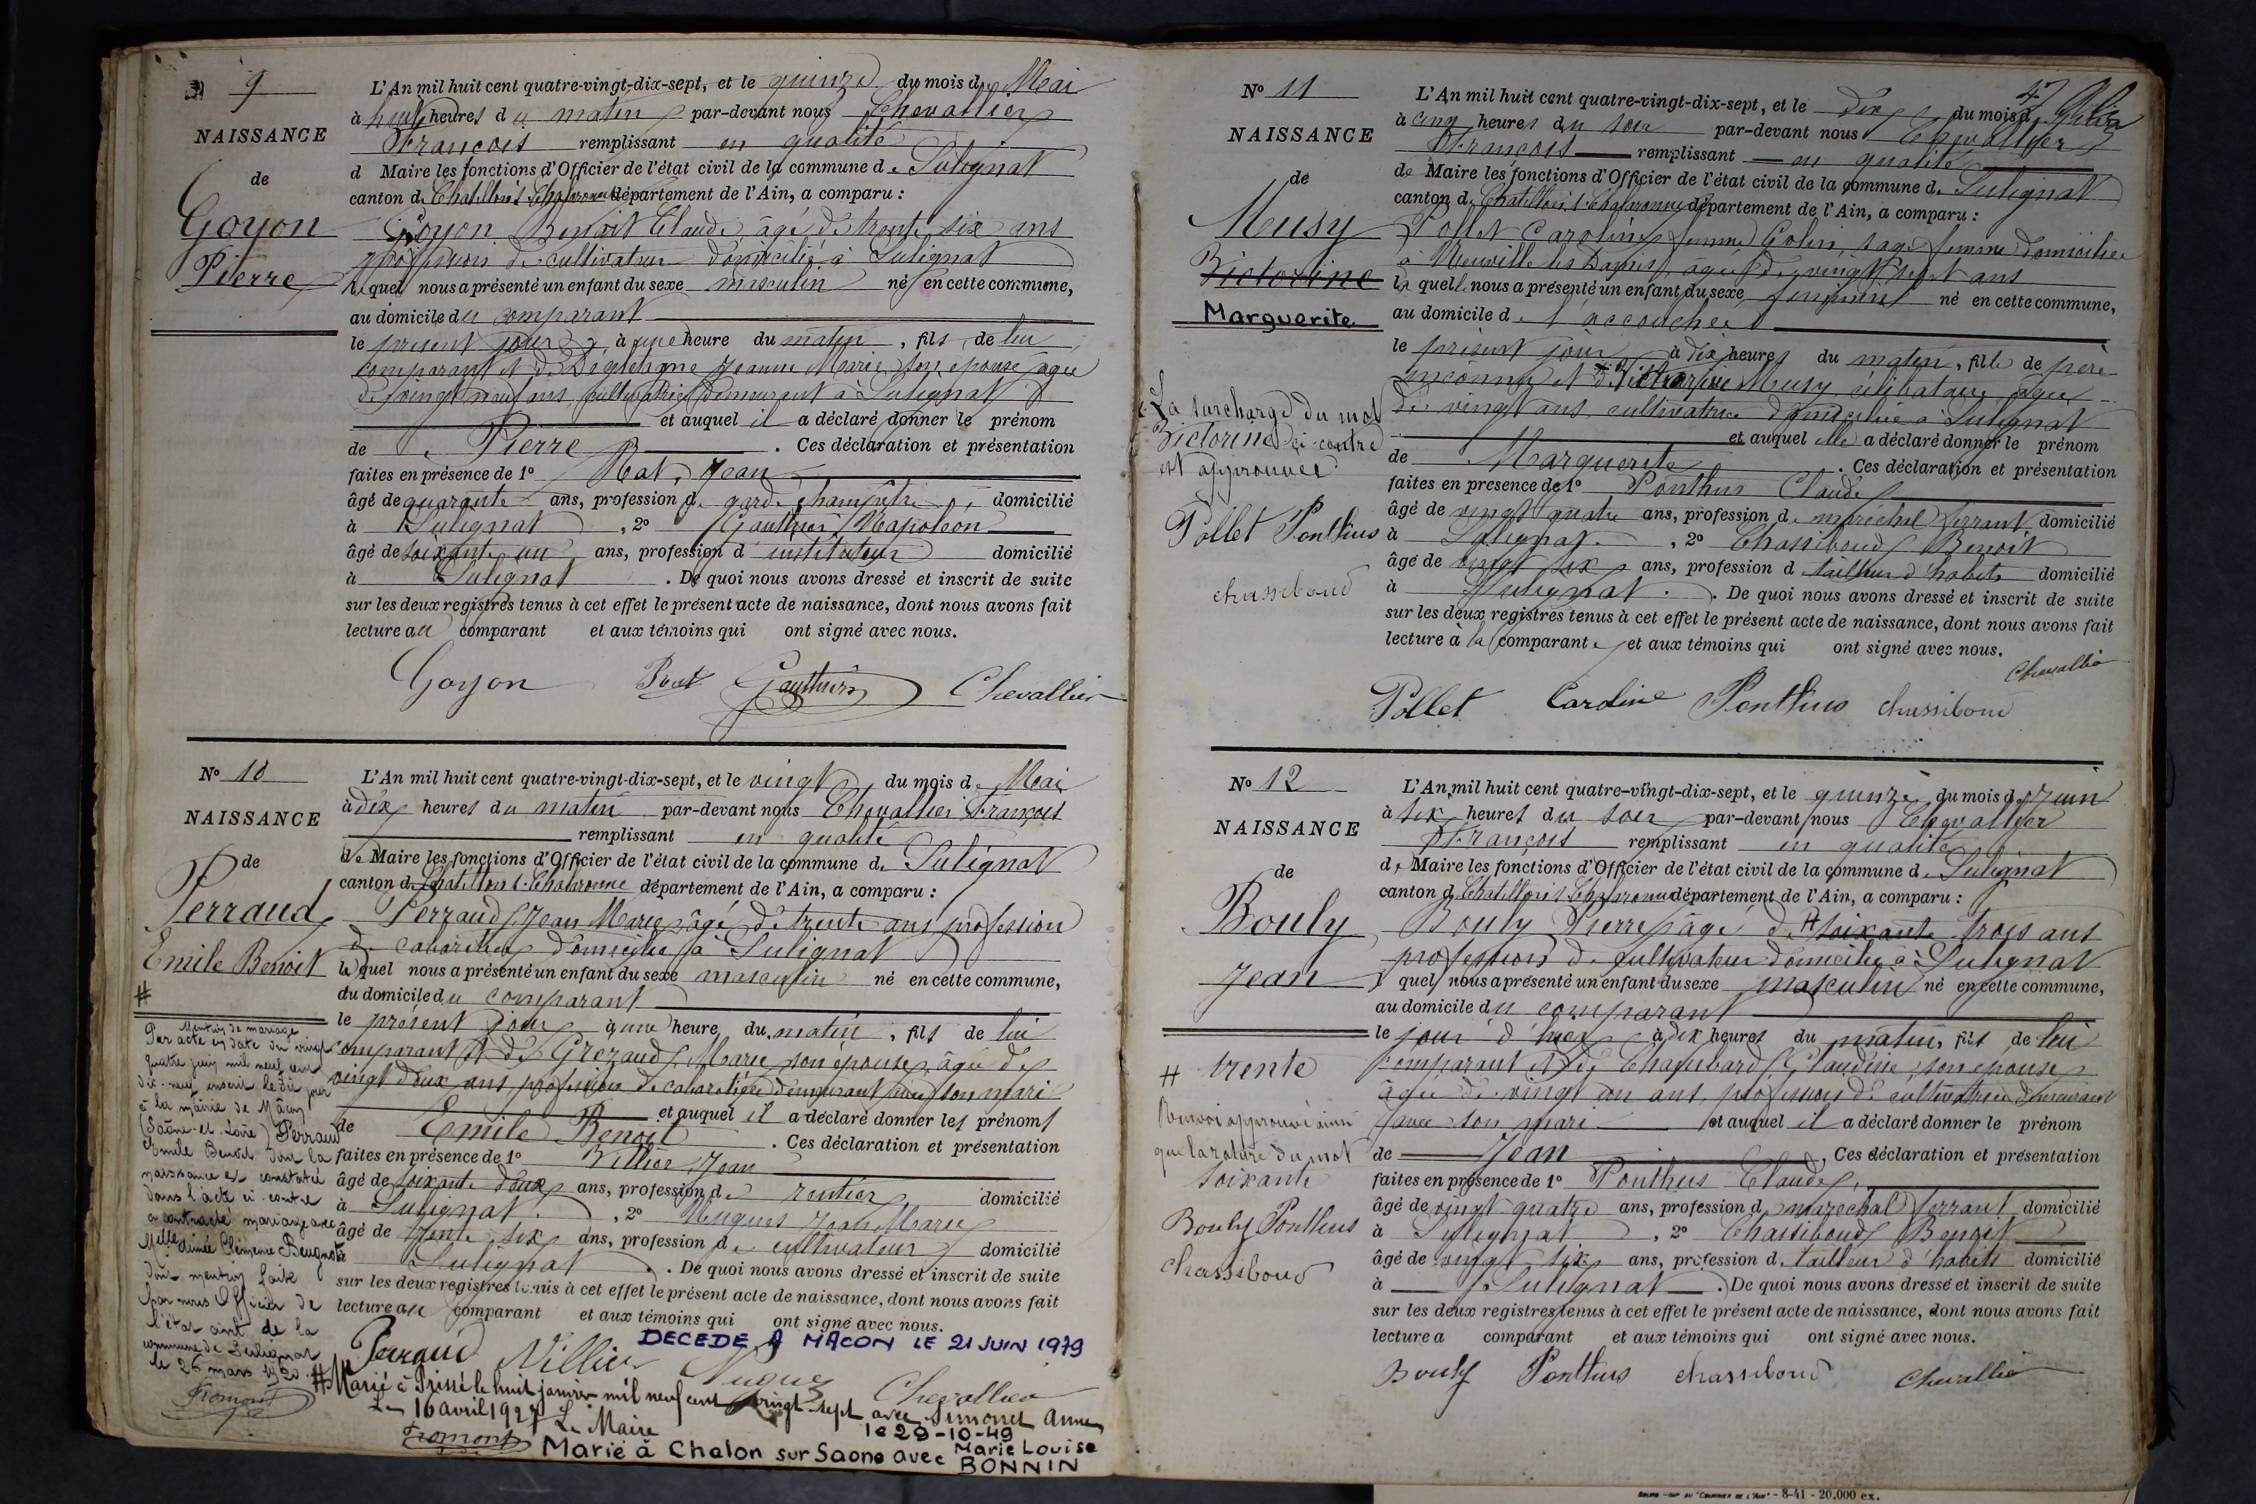 9
NAISSANCE
de
Goyon
Pierre
L'An mil huit cent quatre-vingt-dix-sept, et le quinze du mois de Mai
à huit heures du matin par-devant nous Chevallier
François remplissant en qualité
d Maire les fonctions d'Officier de l'état civil de la commune de Sulignat
canton de Chatillon s. Chalaronne département de l'Ain, a comparu :
Goyon Benoit Claude, âgé de trente six ans
profession de cultivateur domicilié à Sulignat
lequel nous a présenté un enfant du sexe masculin né en cette commune,
au domicile du comparant
le présent jour à une heure du matin, fils de lui
comparant et de Jeanne Marie son épouse âgée
de vingt neuf ans, cultivatrice demeurant à Sulignat
et auquel il a déclaré donner le prénom
de Pierre. Ces déclaration et présentation
faites en présence de 1° Rat, Jean
âgé de quarante ans, profession de garde champêtre, domicilié
à Sulignat, 2° Gauthier Napoléon
âgé de soixante un ans, profession d'instituteur domicilié
à Sulignat. De quoi nous avons dressé et inscrit de suite
sur les deux registres tenus à cet effet le présent acte de naissance, dont nous avons fait
lecture au comparant et aux témoins qui ont signé avec nous.
Goyon Gauthier Chevallier
N° 10
NAISSANCE
de
Perraud
Emile Benoit
#
L'An mil huit cent quatre-vingt-dix-sept, et le vingt du mois de Mai
à dix heures du matin par-devant nous Chevallier François
remplissant en qualité
de Maire les fonctions d'Officier de l'état civil de la commune de Sulignat
canton de Chatillon s. Chalaronne département de l'Ain, a comparu :
Perraud Jean Marie âgé de trente ans profession
de cabaretier domicilié à Sulignat
lequel nous a présenté un enfant du sexe masculin né en cette commune,
au domicile du comparant
le présent jour à une heure du matin, fils de lui
comparant et de Grezaud, Marie son épouse, âgée de
vingt deux ans profession de cabaretière demeurant avec son mari
et auquel il a déclaré donner les prénoms
de Emile Benoit. Ces déclaration et présentation
faites en présence de 1° Villier Jean
âgé de soixante deux ans, profession de rentier, domicilié
à Sulignat, 2° Hugues Jean Marie
âgé de trente six ans, profession de cultivateur domicilié
Sulignat. De quoi nous avons dressé et inscrit de suite
sur les deux registres tenus à cet effet le présent acte de naissance, dont nous avons fait
lecture au comparant et aux témoins qui ont signé avec nous.
DECEDE A MACON LE 21 JUIN 1979
Perraud Villier Chevallier
Mention de mariage
Par acte en date du vingt
quatre juin mil neuf cent
dix-neuf inscrit le dit jour
à la mairie de Mâcon
(Saône-et-Loire) Perraud
Emile Benoit dont la
naissance est constatée
dans l'acte ci-contre
a contracté mariage avec
Melle Aimée Clémence Beugnot
dont mention faite
par nous Officier de
l'état civil de la
commune de Sulignat
le 26 mars 1920.
Fromont
# Marié à Prissé le huit janvier mil neuf cent vingt-sept avec Simonet Anne
Le 16 avril 1927 Le Maire
Fromont
le 29-10-49
Marié à Chalon sur Saone avec Marie Louise
BONNIN
47
N° 11
NAISSANCE
de
Musy
Victorine
Marguerite
L'An mil huit cent quatre-vingt-dix-sept, et le dix du mois de
à cinq heures du soir par-devant nous Chevallier
François remplissant en qualité
de Maire les fonctions d'Officier de l'état civil de la commune de Sulignat
canton de Chatillon s. Chalaronne département de l'Ain, a comparu :
Pollet Caroline femme Colin, sage femme domiciliée
à Neuville les Dames, âgée de vingt sept ans
laquelle nous a présenté un enfant du sexe féminin né en cette commune,
au domicile de l'accouchée
le présent jour à dix heures du matin, fille de père
inconnu et de Victorine Musy célibataire, âgée
de vingt ans cultivatrice domiciliée à Sulignat
et auquel elle a déclaré donner le prénom
de Marguerite. Ces déclaration et présentation
faites en présence de 1° Ponthus Claude
âgé de vingt quatre ans, profession de maréchal ferrant domicilié
à Sulignat, 2° Chassiboud Benoit
âgé de vingt six ans, profession d tailleur d'habits domicilié
à Sulignat. De quoi nous avons dressé et inscrit de suite
sur les deux registres tenus à cet effet le présent acte de naissance, dont nous avons fait
lecture à la comparante et aux témoins qui ont signé avec nous.
Chevallier
Pollet Caroline Ponthus chassiboud
La surcharge du mot
Victorine ci-contre
est approuvée
Pollet Ponthus
chassiboud
N° 12
NAISSANCE
de
Bouly
Jean
L'An mil huit cent quatre-vingt-dix-sept, et le quinze du mois de Juin
à six heures du soir par-devant nous Chevallier
François remplissant en qualité
de Maire les fonctions d'Officier de l'état civil de la commune de Sulignat
canton de Chatillon s. Chalaronne département de l'Ain, a comparu :
Bouly Pierre âgé de # soixante trois ans
profession de cultivateur domicilié à Sulignat
quel nous a présenté un enfant du sexe masculin né en cette commune,
au domicile du comparant
le jour d'hier à dix heures du matin, fils de lui
comparant et de Claudine son épouse
âgée de vingt un ans, profession de cultivatrice demeurant
avec son mari et auquel il a déclaré donner le prénom
de Jean, Ces déclaration et présentation
faites en présence de 1° Ponthus Claude,
âgé de vingt quatre ans, profession de maréchal ferrant domicilié
à Sulignat, 2° Chassiboud Benoit
âgé de vingt six ans, profession d. tailleur d'habits domicilié
à Sulignat. De quoi nous avons dressé et inscrit de suite
sur les deux registres tenus à cet effet le présent acte de naissance, dont nous avons fait
lecture a comparant et aux témoins qui ont signé avec nous.
Bouly Ponthus chassiboud Chevallier
# trente
Renvoi approuvé ainsi
que la rature du mot
soixante
Bouly Ponthus
chassiboud
BOURG - IMP. DU "COURRIER DE L'AIN" - 8-41 - 20.000 ex.